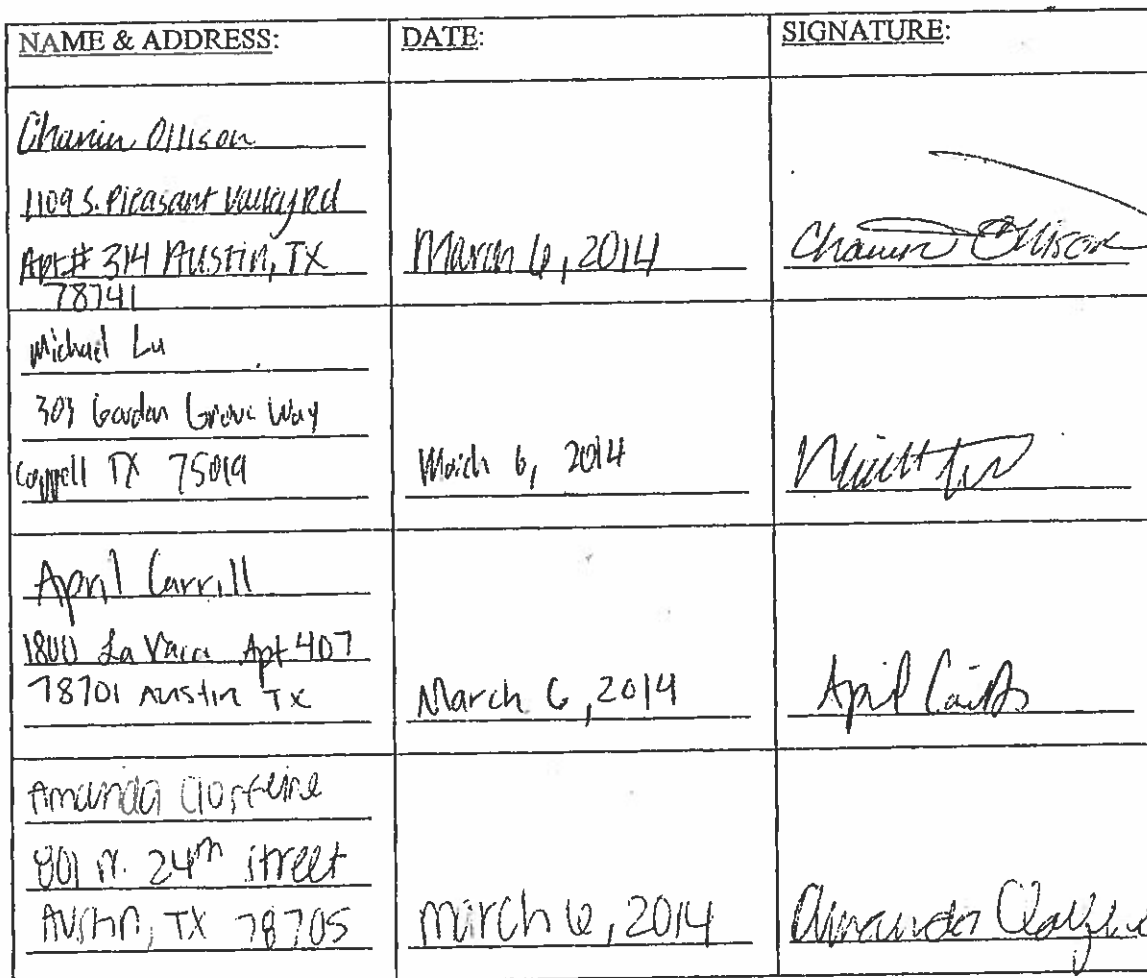 NAME & ADDRESS:
DATE:
SIGNATURE:
Ollison
1109 S. Pleasant Valley Rd
Apt# 314 Austin, TX
78741
March 6, 2014
Ollison
Michael Lu
303 Garden Grove Way
Coppell TX 75019
March 6, 2014
April Carrill
1800 La Vaca Apt 407
78701 Austin TX
March 6, 2014
April
Amanda
801 W. 24th Street
Austin, TX 78705
March 6, 2014
Amanda